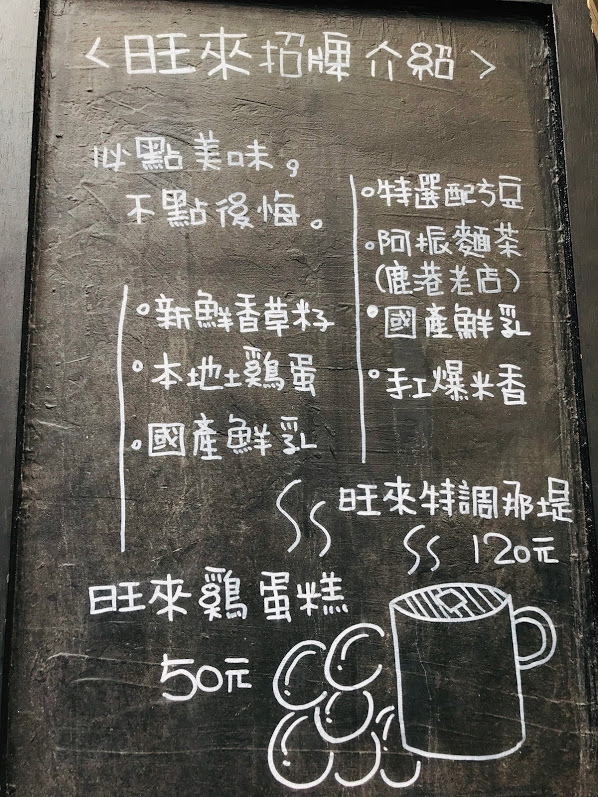 <旺來招牌介紹>
必點美味。
不點後悔。
。新鮮香草籽
。本地土鷄蛋
。國產鮮乳
旺來鷄蛋糕
50元
。特選配方豆
。阿振麵茶
(鹿港老店)
。國產鮮乳
。手工爆米香
旺來特調那堤
120元